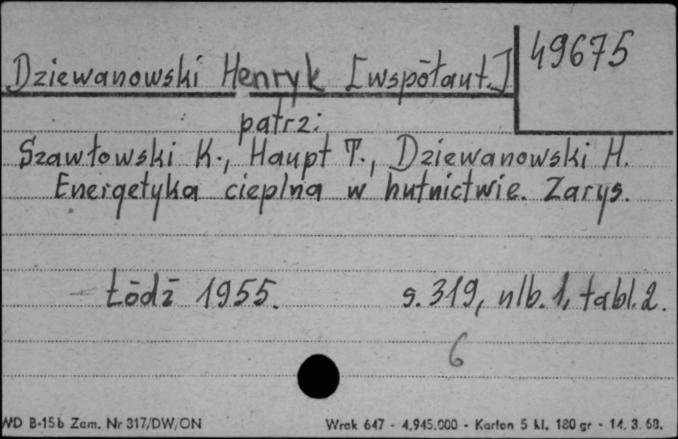 49675
Dziewanowski Henryk [współaut.]
patrz:
Szawłowski K., Haupt T., Dziewanowski H.
Energetyka cieplna w hutnictwie. Zarys.
Łódź 1955. s. 319, nlb. 1, tabl. 2.
6
WD B-15b Zam. Nr 317/DW/ON Wrok 647 - 4.945.000 - Karton 5 kl. 180 gr - 14. 3. 68.